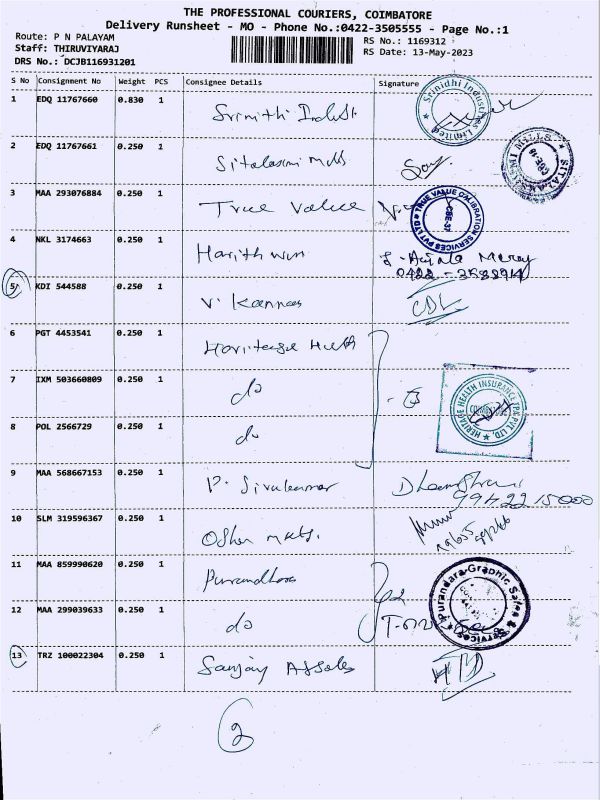 THE PROFESSIONAL COURIERS, COIMBATORE
Delivery Runsheet - MO - Phone No.:0422-3505555 - Page No.:1
Route: P N PALAYAM
RS No.: 1169312
Staff: THIRUVIYARAJ
RS Date: 13-May-2023
DRS No.: DCJB116931201
S No Consignment No Weight PCS Consignee Details Signature
1 EDQ 11767660 0.830 1 Srinidhi Industries Limited
2 EDQ 11767661 0.250 1
3 MAA 293076884 0.250 1 True Value TRUE VALUE CALIBRATION SERVICES PVT LTD CBE-37
4 NKL 3174663 0.250 1
0422 -
5 KDI 544588 0.250 1 V. Kannan CDL
6 PGT 4453541 0.250 1
7 IXM 503660809 0.250 1 do
8 POL 2566729 0.250 1 do HERITAGE HEALTH INSURANCE TPA PVT. LTD.
9 MAA 568667153 0.250 1 P. Sivakumar
9942215000
10 SLM 319596367 0.250 1
11 MAA 859990620 0.250 1 Purandhara Purandara Graphic Sales & Services
12 MAA 299039633 0.250 1 do
13 TRZ 100022304 0.250 1 Sanjay
2